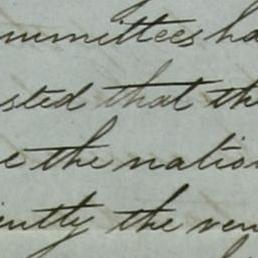 mmittees ha
sted that th
e the nation
ently the ven